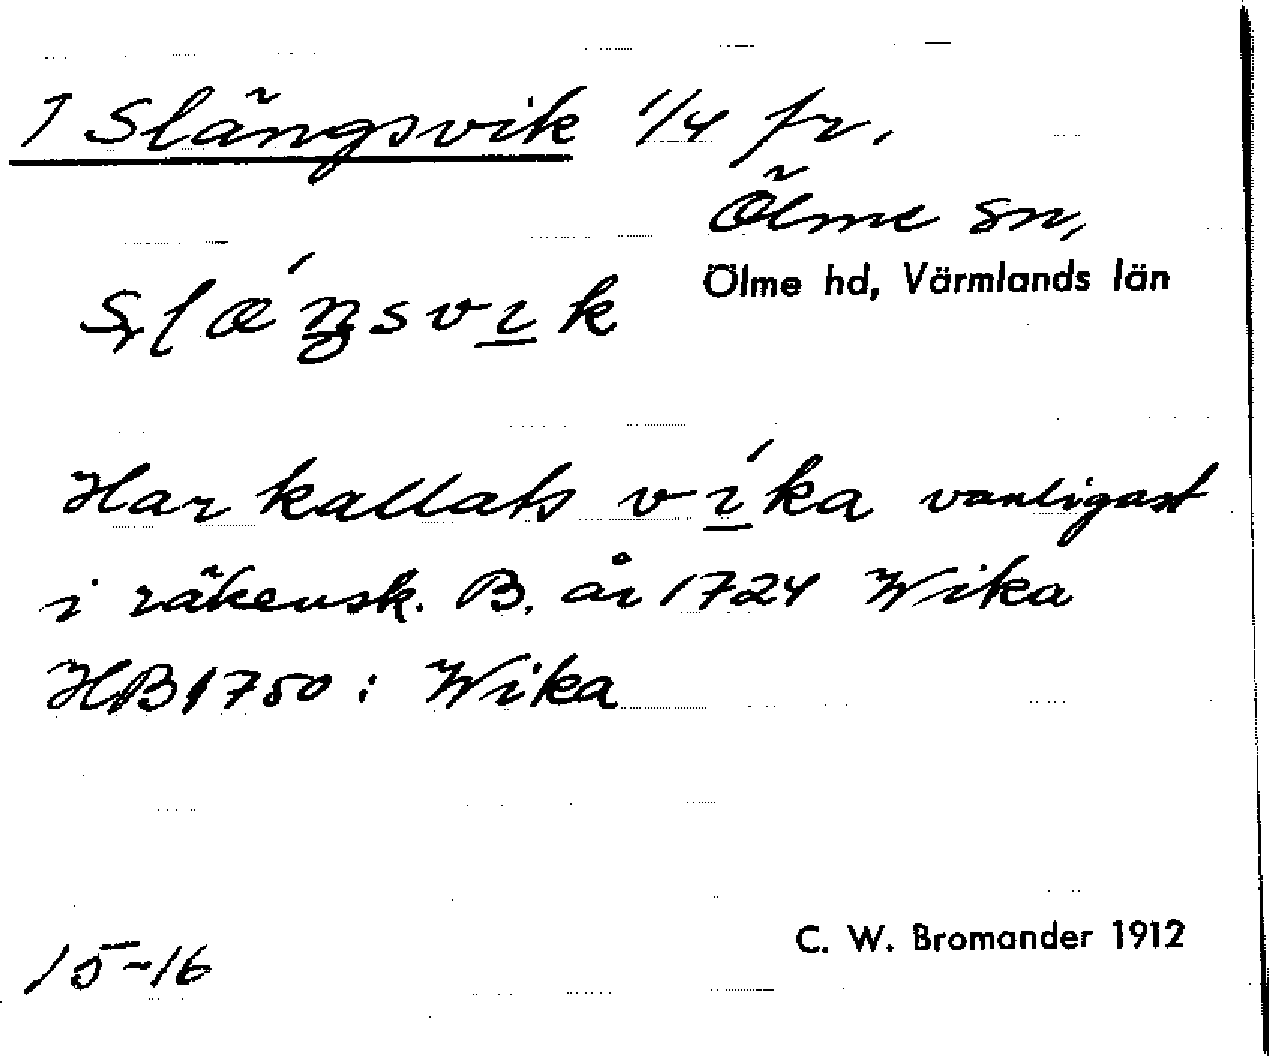 1 Slängsvik 1/4 fr.
Ölme sn,
Ölme hd, Värmlands län
Slǽŋsvik
Har kallats víka vanligast
i räkensk. B. år 1724 Wika
HB 1750: Wika
C. W. Bromander 1912
15-16